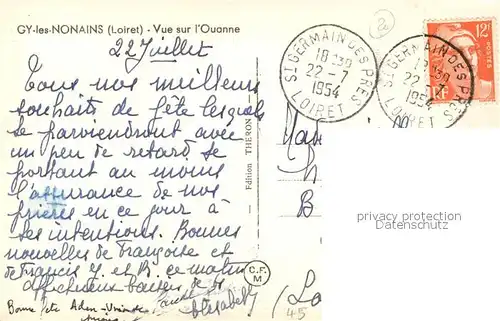 GY-les-NONAINS (Loiret) - Vue sur l'Ouanne
22 Juillet
Tous nos meilleurs
souhaits de fête lesquels
te parviendront avec
un peu de retard te
portant au moins
l'assurance de nos
prières en ce jour à
tes intentions. Bonnes
nouvelles de Françoise et
de Francis Y. et B. ce matin
Affectueux baisers de
Elisabeth
Bonne fête
Edition THERON
C.F.
M
ST GERMAIN DES PRES
18 30
22-7
1954
LOIRET
ST GERMAIN DES PRES
18 30
22
1954
LOIRET
12F
B
privacy protection
Datenschutz
45